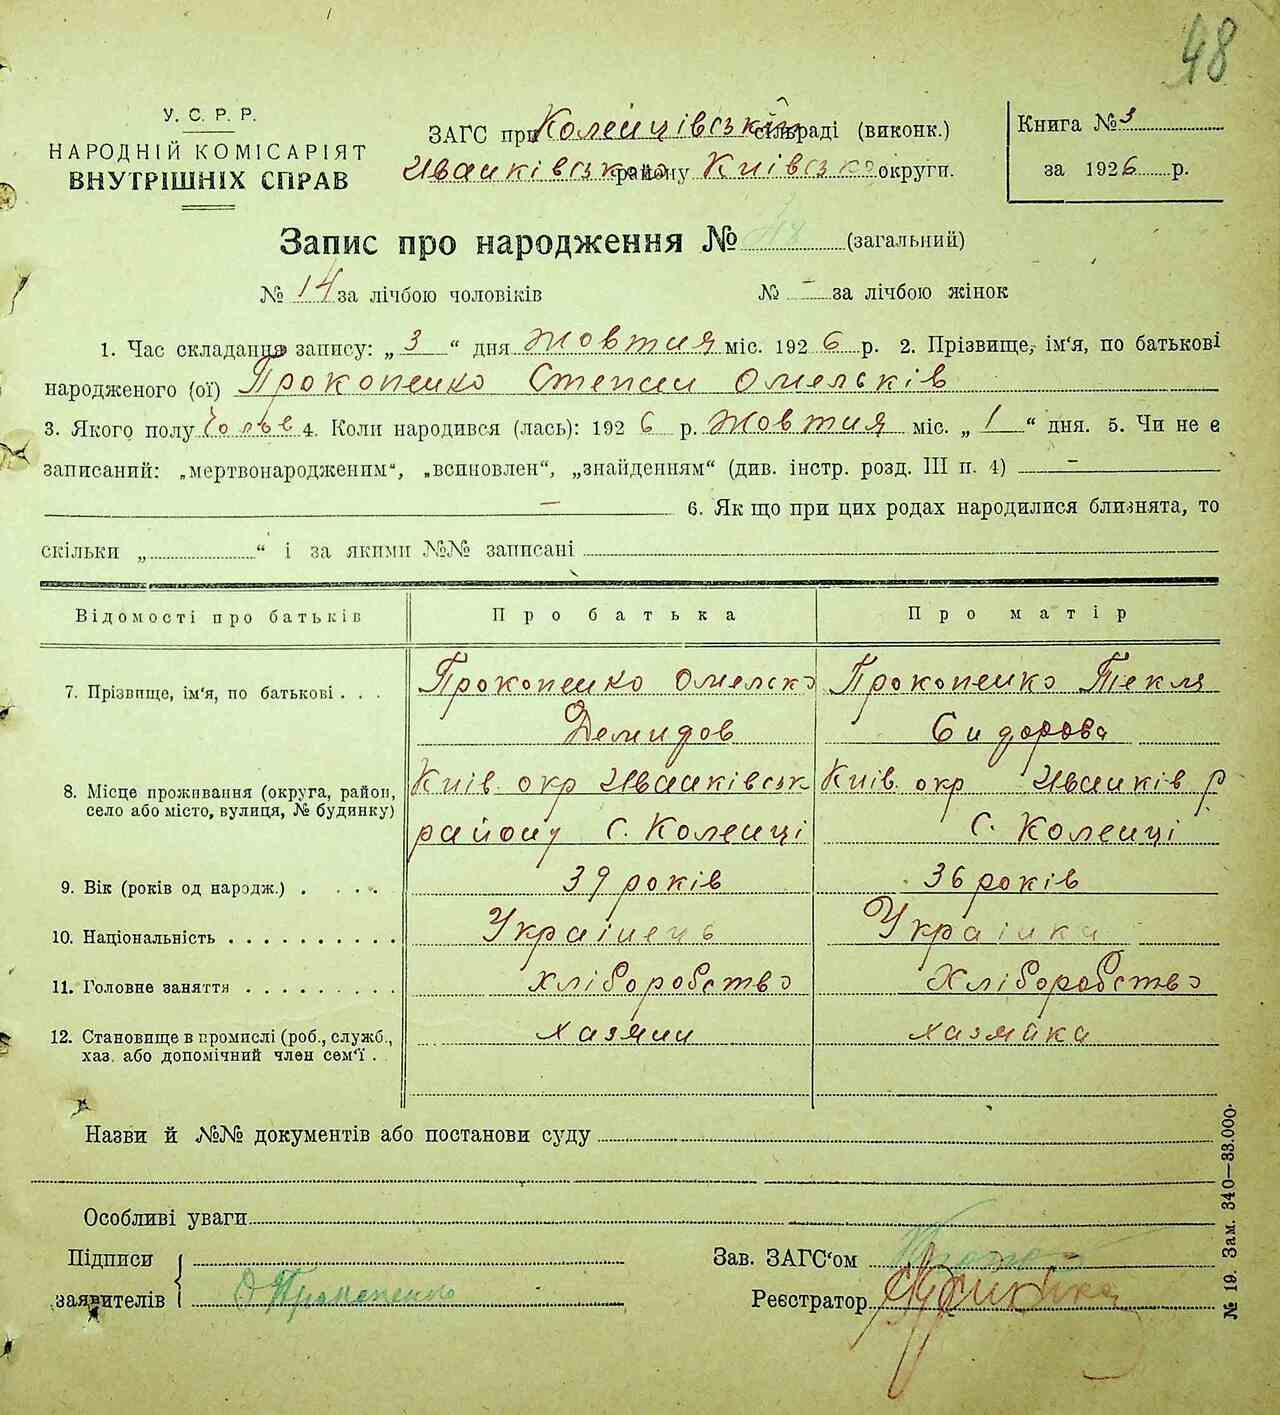 48
У. С. Р. Р.
НАРОДНІЙ КОМІСАРІЯТ
ВНУТРІШНІХ СПРАВ
ЗАГС при Коленцівській сільраді (виконк.)
Иванківсько району Київсько округи.
Книга № 3
за 1926 р.
Запис про народження № 48 (загальний)
№ 14 за лічбою чоловіків № - за лічбою жінок
1. Час складання запису: „ 3 “ дня жовтня міс. 1926 р. 2. Прізвище, ім'я, по батькові
народженого (ої) Прокопенко Степан Омельків
3. Якого полу чолов 4. Коли народився (лась): 1926 р. жовтня міс. „ 1 “ дня. 5. Чи не є
записаний: „мертвонародженим“, „всиновлен“, „знайденням“ (див. інстр. розд. III п. 4) -
- 6. Як що при цих родах народилися близнята, то
скільки „ “ і за якими №№ записані
Відомості про батьків Про батька Про матір
7. Прізвище, ім'я, по батькові . . . Прокопенко Омелько Прокопенко Текля
Демидов Сидорова
8. Місце проживання (округа, район, Київ. окр Иванківськ Київ. окр Иванків р
село або місто, вулиця, № будинку) району с. Коленці с. Коленці
9. Вік (років од народж.) . . . . 39 років 36 років
10. Національність . . . . . . . . . . Українець Українка
11. Головне заняття . . . . . . . . . хліборобство хліборобство
12. Становище в промислі (роб., служб., хазяин хазяйка
хаз. або допомічний член сем'ї .
Назви й №№ документів або постанови суду
Особливі уваги
Підписи Зав. ЗАГС'ом
заявителів О Прокопенко Реєстратор
№ 19. Зам. 340—83.000.